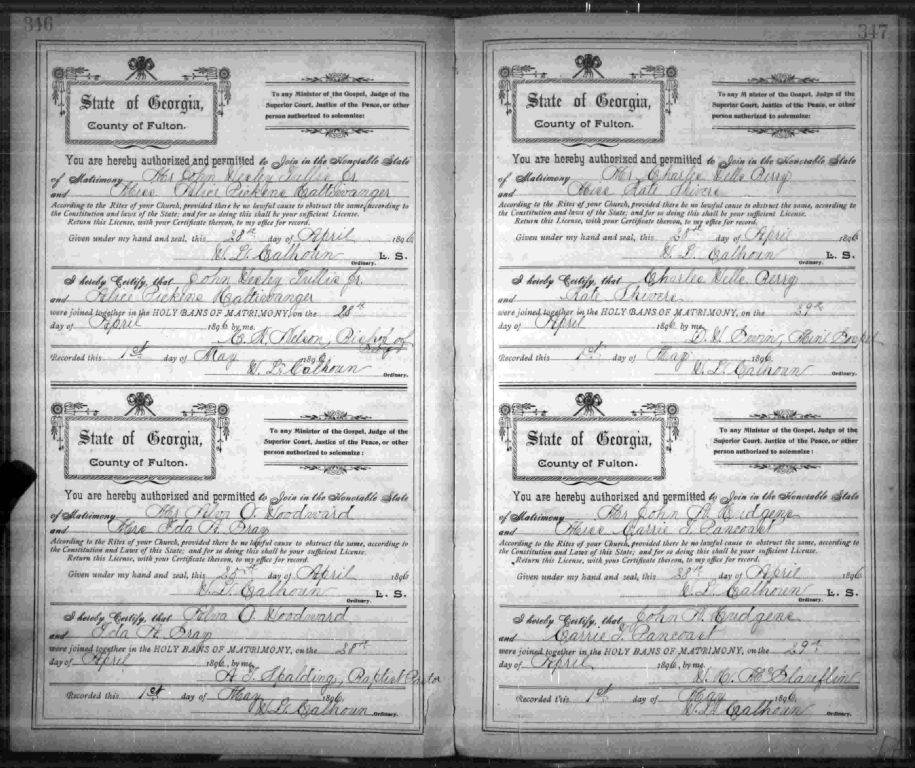 346
State of Georgia,
County of Fulton.
To any Minister of the Gospel, Judge of the
Superior Court, Justice of the Peace, or other
person authorized to solemnize:
You are hereby authorized and permitted to Join in the Honorable State
of Matrimony Mr John Jr
and Miss Alice Pickens
According to the Rites of your Church, provided there be no lawful cause to obstruct the same, according to
the Constitution and laws of the State; and for so doing this shall be your sufficient License.
Return this License, with your Certificate thereon, to my office for record.
Given under my hand and seal, this 28th day of April 1896
W. L. Calhoun L. S.
Ordinary.
I hereby Certify, that John Jr.
and Alice Pickens
were joined together in the HOLY BANS OF MATRIMONY, on the 28th
day of April 1896 by me.
C. K. Nelson, Bishop of
Recorded this 1st day of May 1896
W. L. Calhoun
Ordinary.
State of Georgia,
County of Fulton.
To any Minister of the Gospel, Judge of the
Superior Court, Justice of the Peace, or other
person authorized to solemnize:
You are hereby authorized and permitted to Join in the Honorable State
of Matrimony Mr O. Woodward
and Miss Ida A. Bray
According to the Rites of your Church, provided there be no lawful cause to obstruct the same, according to
the Constitution and Laws of this State; and for so doing this shall be your sufficient License.
Return this License, with your Certificate thereon, to my office for record.
Given under my hand and seal, this day of April 1896
W. L. Calhoun L. S.
Ordinary.
I hereby Certify, that O. Woodward
and Ida A. Bray
were joined together in the HOLY BANS OF MATRIMONY, on the 28th
day of April 1896, by me.
A. T. Spalding, Baptist Pastor
Recorded this 1st day of May 1896
W. L. Calhoun
Ordinary.
347
State of Georgia,
County of Fulton.
To any Minister of the Gospel, Judge of the
Superior Court, Justice of the Peace, or other
person authorized to solemnize:
You are hereby authorized and permitted to Join in the Honorable State
of Matrimony Mr Charlie Perry
and Miss Kate Shivers
According to the Rites of your Church, provided there be no lawful cause to obstruct the same, according to
the Constitution and laws of the State; and for so doing this shall be your sufficient License.
Return this License, with your Certificate thereon, to my office for record.
Given under my hand and seal, this 28th day of April 1896
W. L. Calhoun L. S.
Ordinary.
I hereby Certify, that Charlie Perry
and Kate Shivers
were joined together in the HOLY BANS OF MATRIMONY, on the 29th
day of April 1896, by me,
D. W. Gospel
Recorded this 1st day of May 1896
W. L. Calhoun
Ordinary.
State of Georgia,
County of Fulton.
To any Minister of the Gospel, Judge of the
Superior Court, Justice of the Peace, or other
person authorized to solemnize:
You are hereby authorized and permitted to Join in the Honorable State
of Matrimony Mr John A.
and Miss Carrie T. Pancoast
According to the Rites of your Church, provided there be no lawful cause to obstruct the same, according to
the Constitution and Laws of this State; and for so doing this shall be your sufficient License.
Return this License, with your Certificate thereon, to my office for record.
Given under my hand and seal, this 28th day of April 1896
W. L. Calhoun L. S.
Ordinary.
I hereby Certify, that John A.
and Carrie T. Pancoast
were joined together in the HOLY BANS OF MATRIMONY, on the 29th
day of April 1896, by me.
Recorded this 1st day of May 1896
W. L. Calhoun
Ordinary.